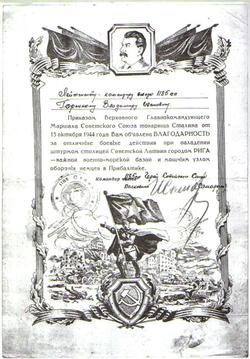 Лейтенанту
Горикову Владимиру Ивановичу
Приказом Верховного Главнокомандующего
Маршала Советского Союза товарища Сталина от
13 октября 1944 года Вам об'явлена БЛАГОДАРНОСТЬ
за отличные боевые действия при овладении
штурмом столицей Советской Латвии городом РИГА
—важной военно-морской базой и мощным узлом
обороны немцев в Прибалтике.
Командир Герой Советского Союза
полковник